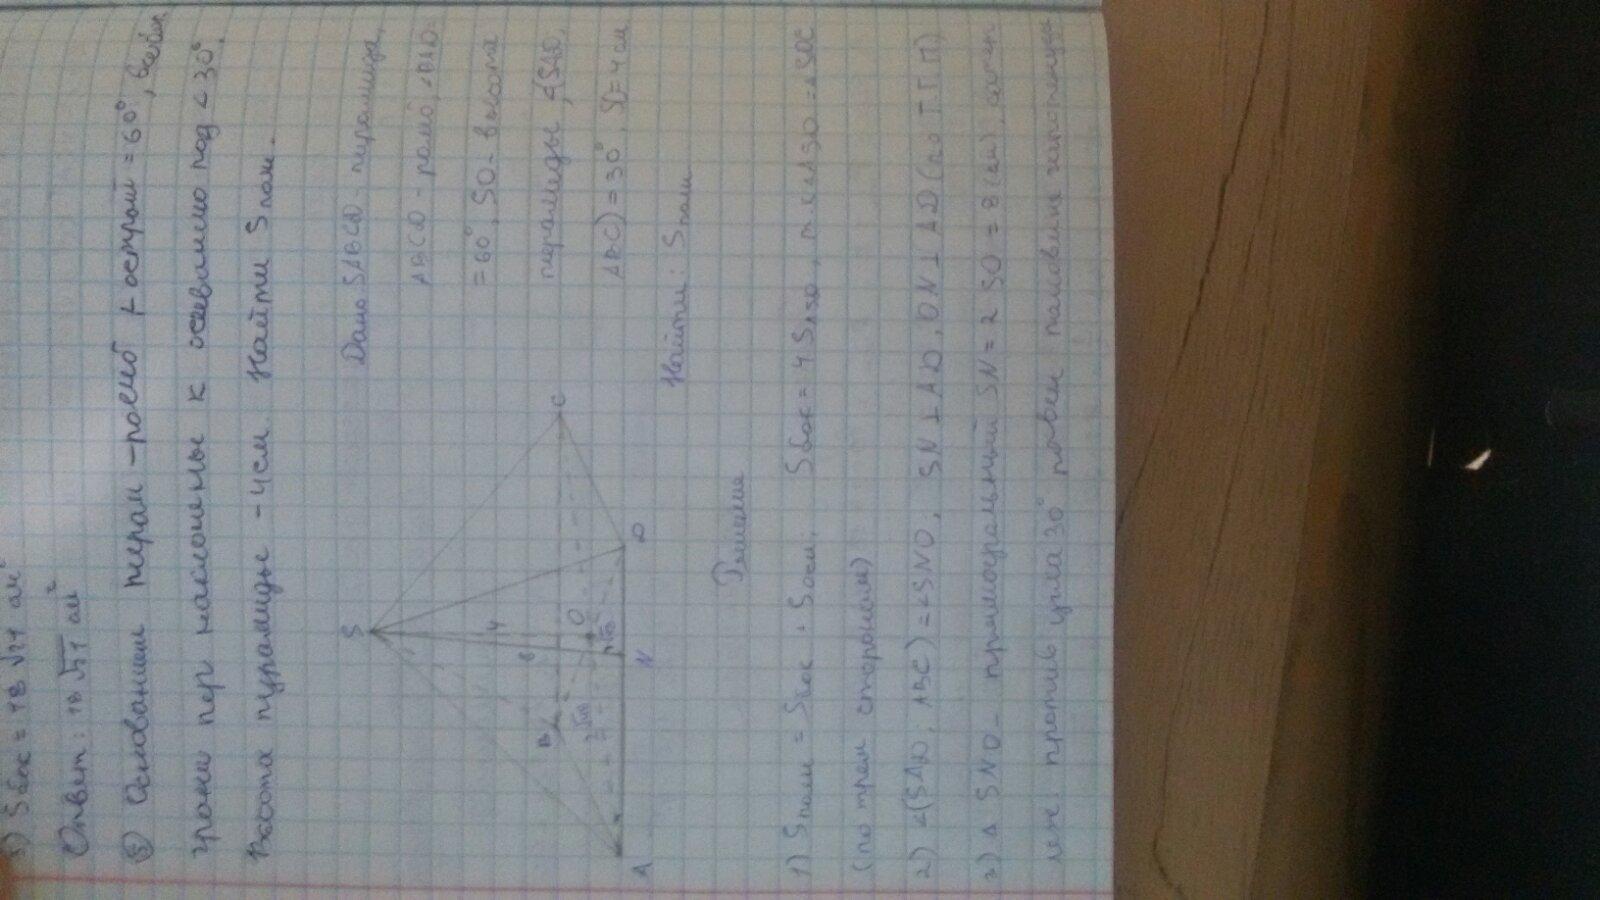 3) Sбок = 18 √21 см²
Ответ: 18 √21 см²
⑤ Основанием пирам - ромб ∠ острый = 60°, всебок
грани пир наклонены к основанию под ∠30°.
Высота пирамиды - 4см. Найти Sполн.
Дано SABCD - пирамида,
ABCD - ромб, ∠BAD=
= 60°, SO - высота
пирамиды, ∠(SAD,
ABC) = 30°, SO=4см
Найти: Sполн
S
4
8
B
O
C
A
N
D
Решение
1) Sполн = Sбок + Sосн; Sбок = 4 SASD, т.к ΔASD = ΔSDC
(по трем сторонам)
2) ∠(SAD; ABC) = ∠SNO, SN ⊥ AD, ON ⊥ AD (по ТТП)
3) Δ SNO - прямоугольный SN = 2 SO = 8 (см), катет
леж. против угла 30° равен половине гипотенузы